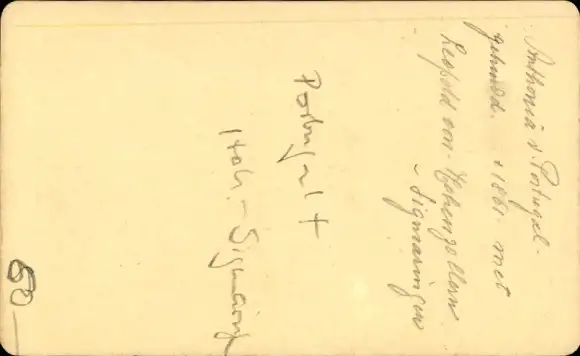 Anthonia v. Portugal -
gehuwd. + 1861. met
Leopold von Hohenzollern
- Sigmaringen
Portugal +
Hoh. - Sigmaring
50 -